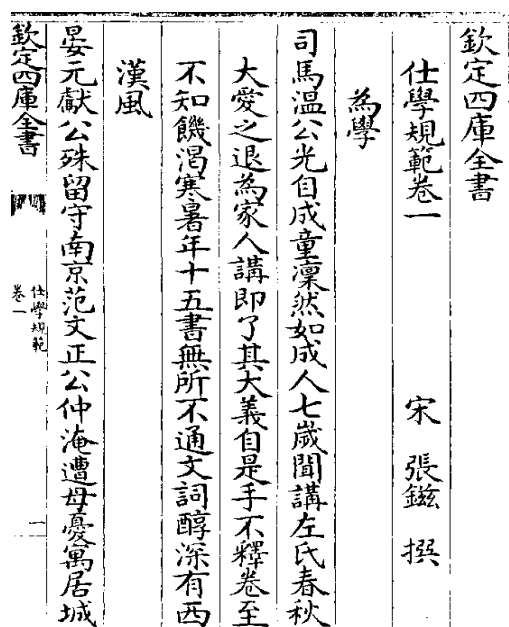 欽定四庫全書
仕學規範卷一
宋 張鎡 撰
為學
司馬溫公光自成童凜然如成人七歲聞講左氏春秋
大愛之退為家人講即了其大義自是手不釋卷至
不知饑渴寒暑年十五書無所不通文詞醇深有西
漢風
晏元獻公殊留守南京范文正公仲淹遭母憂寓居城
欽定四庫全書
仕學規範
卷一
一